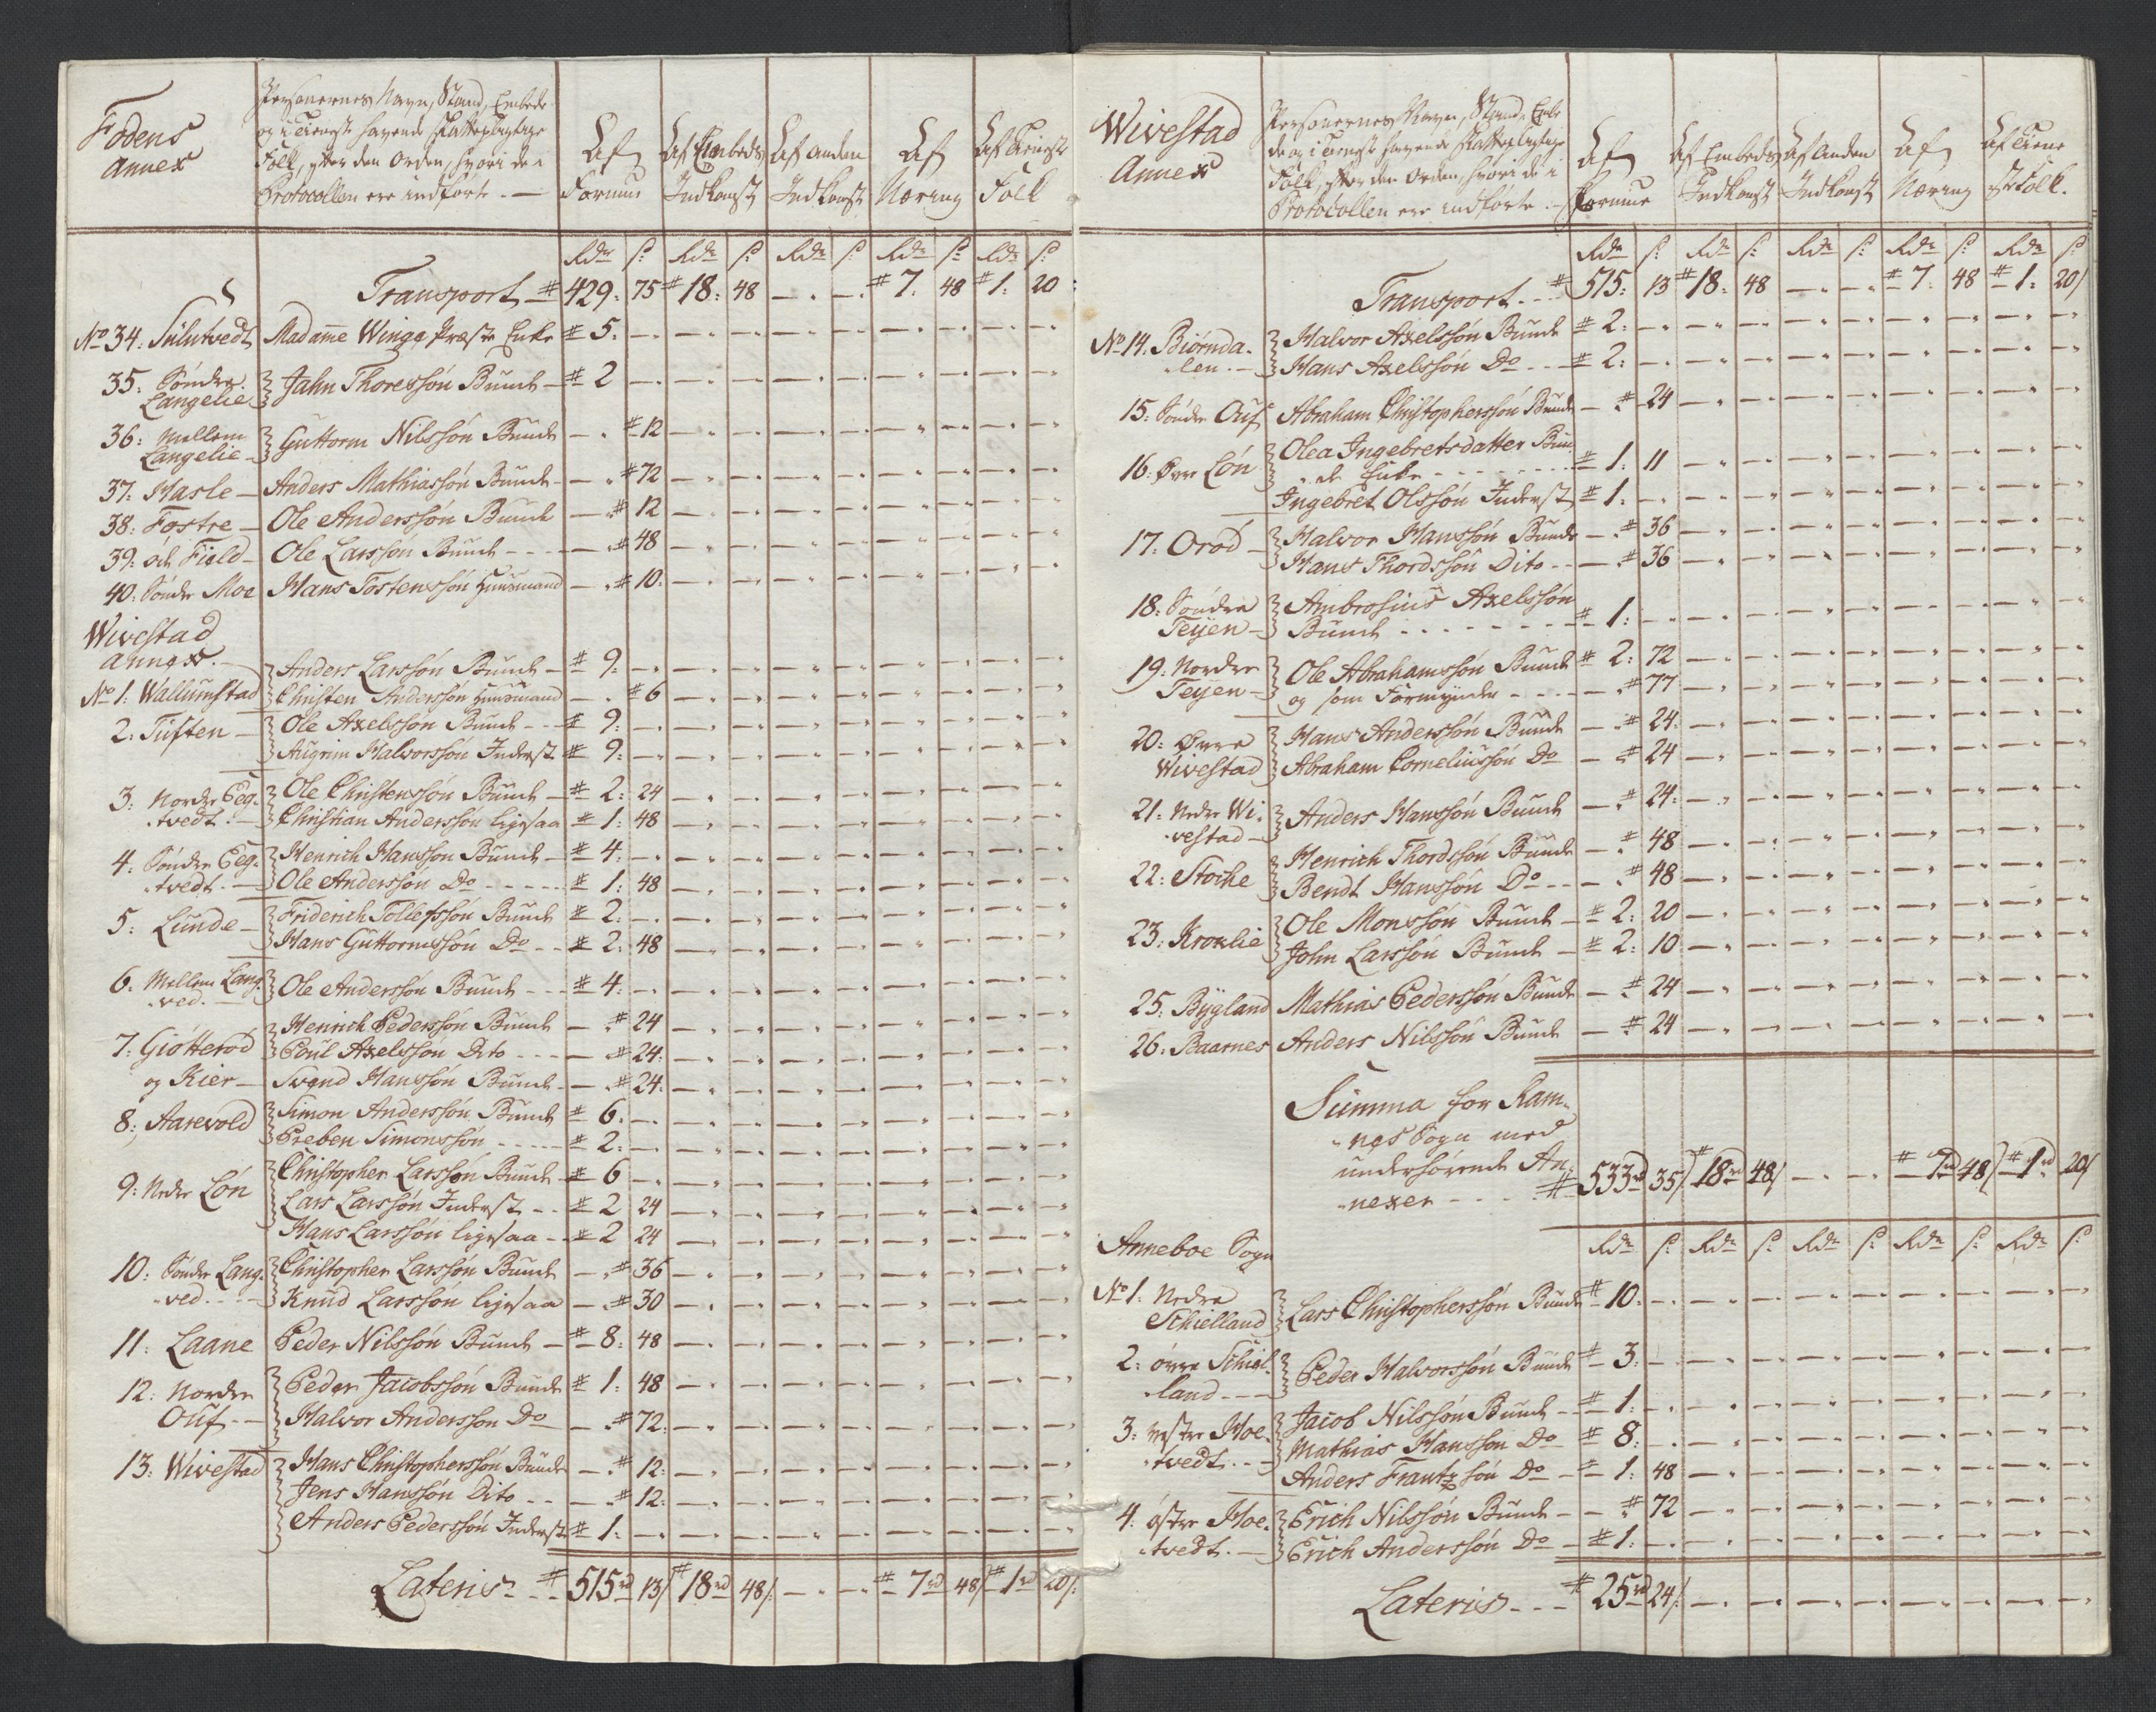 Fodens
Annex
Personernes Navn, Stand, Embede
og i Tieneste havende skattepligtige
Folk, efter den Orden, hvori de i
Protocollen ere indførte.
Af Formue
Af Embeds Indkomst
Af anden Indkomst
Af Næring
Af Tieneste Folk
Rdr ß: Rdr ß: Rdr ß Rdr ß: Rdr ß:
Transport # 429: 75 # 18: 48 — . — . # 7. 48 # 1: 20
No 34: Madame Winge Præste Enke # 5. —
35: Søndre Langelie Jahn Thoressøn Bunde # 2 —
36: Mellem Langelie Guttorm Nilssøn Bunde — # 12
37: Hasle Anders Mathiassøn Bunde — # 72
38: Fostre Ole Anderssøn Bunde — # 12
39: Field Ole Larssøn Bunde — # 48
40: Søndre Moe Hans Tostenssøn Huusmand — # 10:
Wivestad
Annex.
No 1: Wallumstad Anders Larssøn Bunde # 9: —
Christen Anderssøn Huusmand — # 6
2: Tuften Ole Axelssøn Bunde # 9: —
Augrim Halvorssøn Inderst # 9: —
3: Nordre Peg-tvedt Ole Christenssøn Bunde # 2: 24
Christian Anderssøn ligesaa # 1: 48
4: Søndre Peg-tvedt Henrich Hanssøn Bunde # 4: —
Ole Anderssøn Do # 1: 48
5: Lunde Friderich Tollefssøn Bunde # 2: —
Hans Guttormssøn Do # 2: 48
6: Mellem Lang-ved Ole Anderssøn Bunde # 4: —
7: Giøtterød Henrich Pederssøn Bunde — # 24
Poul Axelssøn Dito — # 24:
og Kier Svend Hanssøn Bunde — # 24:
8: Aarevold Simon Anderssøn Bunde # 6. —
Preben Simonssøn # 2: —
9: Nedre Løn Christopher Larssøn Bunde # 6 —
Lars Larssøn Inderst # 2 24
Hans Larssøn ligesaa # 2 24
10: Søndre Lang-ved Christopher Larssøn Bunde — # 36
Knud Larssøn ligesaa — # 30
11: Laane Peder Nilssøn Bunde # 8: 48
12: Nordre Ouf Peder Jacobssøn Bunde # 1: 48
Halvor Anderssøn Do — # 72:
13: Wivestad Hans Christopherssøn Bunde — # 12:
Jens Hanssøn Dito — # 12:
Anders Pederssøn Inderst # 1: —
Lateris # 515rd 13ß # 18rd 48ß — . — . # 7rd 48ß # 1rd 20ß:
Wivestad
Annex
Personernes Navn, Stand, Embe
de og i Tieneste havende skattepligtige
Folk, efter den Orden, hvori de i
Protocollen ere indførte.
Af Formue
Af Embeds Indkomst
Af Anden Indkomst
Af Næring
Af Tiene ste Folk.
Rdr ß: Rdr ß: Rdr ß: Rdr ß: Rdr ß
Transport # 515: 13 # 18: 48 — . — . # 7. 48 # 1: 20ß
No 14: Biørnda-len Halvor Axelssøn Bunde # 2: —
Hans Axelssøn Do # 2: —
15: Søndre Ouf Abraham Christopherssøn Bunde — # 24
16: Øvre Løn Olea Ingebretsdatter Bun-
de Enke # 1: 11
Ingebret Olssøn Inderst # 1: —
17: Orød Halvor Hanssøn Bunde — # 36
Hans Thordssøn Dito — # 36
18: Søndre Teyen Ambrosius Axelssøn
Bunde # 1: —
19: Nordre Teyen Ole Abrahamssøn Bunde # 2: 72
og som Formynder — # 77
20: Øvre Wivestad Hans Anderssøn Bunde — # 24:
Abraham Corneliussøn Do — # 24
21: Nedre Wi-vestad Anders Hanssøn Bunde — # 24:
22: Stoche Henrich Thordssøn Bunde — # 48
Bendt Hanssøn Do — # 48
23: Kroxlie Ole Monssøn Bunde # 2: 20
John Larssøn Bunde # 2: 10
25: Bygland Mathias Pederssøn Bunde — # 24
26: Baarnes Anders Nilssøn Bunde — # 24
Summa for Ram-
nes Sogn med
underhørende An-
nexer # 533rd 35ß # 18rd 48ß — . — . # 7rd 48ß # 1rd 20ß
Anneboe Sogn
Rdr ß: Rdr ß: Rdr ß: Rdr ß: Rdr ß:
No 1: Nedre Schielland Lars Christopherssøn Bunde # 10: —
2: øvre Schiel-land Peder Halvorssøn Bunde # 3: —
3: vestre Hoe-tvedt Jacob Nilssøn Bunde # 1: —
Mathias Hanssøn Do # 8: —
Anders Frantzsøn Do # 1: 48
4: østre Hoe-tvedt Erich Nilssøn Bunde — # 72
Erich Anderssøn Do # 1: —
Lateris # 25rd 24ß: —